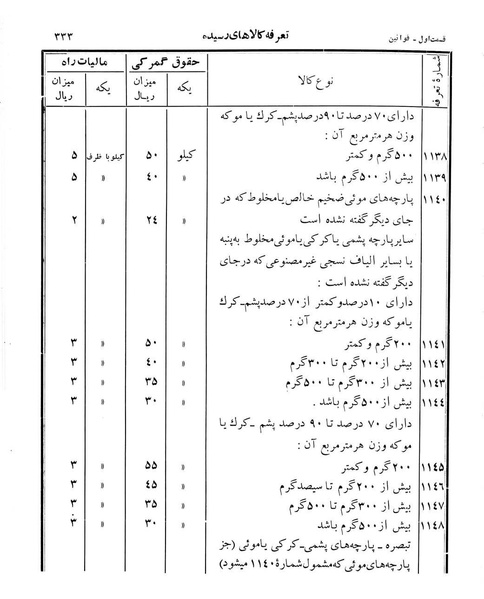 قسمت اول - قوانین تعرفه کالاهای رسیده ۳۳۳
شمارهٔ تعرفه نوع کالا حقوق گمرکی مالیات راه
یکه میزان ریال یکه میزان ریال
دارای ۷۰ درصد تا ۹۰ درصد پشم ـ کرك یا مو که
وزن هر متر مربع آن :
۱۱۳۸ ۵۰۰ گرم و کمتر کیلو ۵۰ کیلو با ظرف ۵
۱۱۳۹ بیش از ۵۰۰ گرم باشد » ۴۰ » ۵
۱۱۴۰ پارچه‌های موئی ضخیم خالص یا مخلوط که در
جای دیگر گفته نشده است » ۲۴ » ۲
سایر پارچه پشمی یا کرکی یا موئی مخلوط به پنبه
یا بسایر الیاف نسجی غیر مصنوعی که در جای
دیگر گفته نشده است :
دارای ۱۰ درصد و کمتر از ۷۰ درصد پشم ـ کرك
یا مو که وزن هر متر مربع آن :
۱۱۴۱ ۲۰۰ گرم و کمتر » ۵۰ » ۳
۱۱۴۲ بیش از ۲۰۰ گرم تا ۳۰۰ گرم » ۴۰ » ۳
۱۱۴۳ بیش از ۳۰۰ گرم تا ۵۰۰ گرم » ۳۵ » ۳
۱۱۴۴ بیش از ۵۰۰ گرم باشد . » ۳۰ » ۳
دارای ۷۰ درصد تا ۹۰ درصد پشم ـ کرك یا
مو که وزن هر متر مربع آن :
۱۱۴۵ ۲۰۰ گرم و کمتر » ۵۵ » ۳
۱۱۴۶ بیش از ۲۰۰ گرم تا سیصد گرم » ۴۵ » ۳
۱۱۴۷ بیش از ۳۰۰ گرم تا ۵۰۰ گرم » ۳۵ » ۳
۱۱۴۸ بیش از ۵۰۰ گرم باشد » ۳۰ » ۳
تبصره ـ پارچه‌های پشمی ـ کرکی یا موئی (جز
پارچه‌های موئی که مشمول شمارهٔ ۱۱۴۰ میشود)